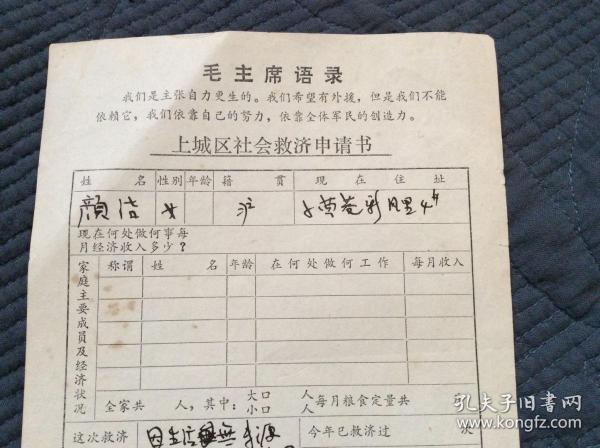 毛主席语录
我们是主张自力更生的。我们希望有外援，但是我们不能
依赖它，我们依靠自己的努力，依靠全体军民的创造力。
上城区社会救济申请书
姓名 性别 年龄 籍贯 现在住址
颜洁 女 沪
现在何处做何事每
月经济收入多少？
家庭主要成员及经济状况
称谓 姓名 年龄 在何处做何工作 每月收入
全家共 人，其中：大口 人 每月粮食定量共
小口 人
这次救济 因生活无来源 今年已救济过 次
孔夫子旧书网
kongfz.com